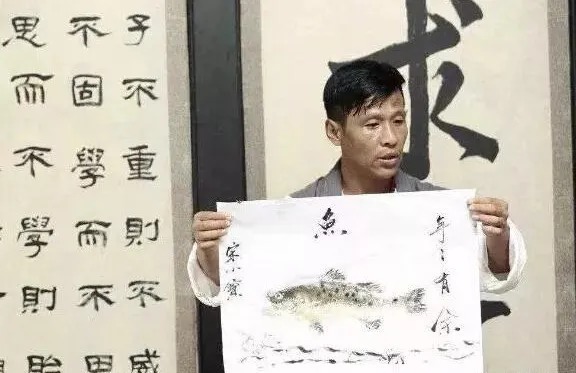 子不重則不威
不固學而不思
思而不學則殆
求
魚
年〻有余
宋小寶